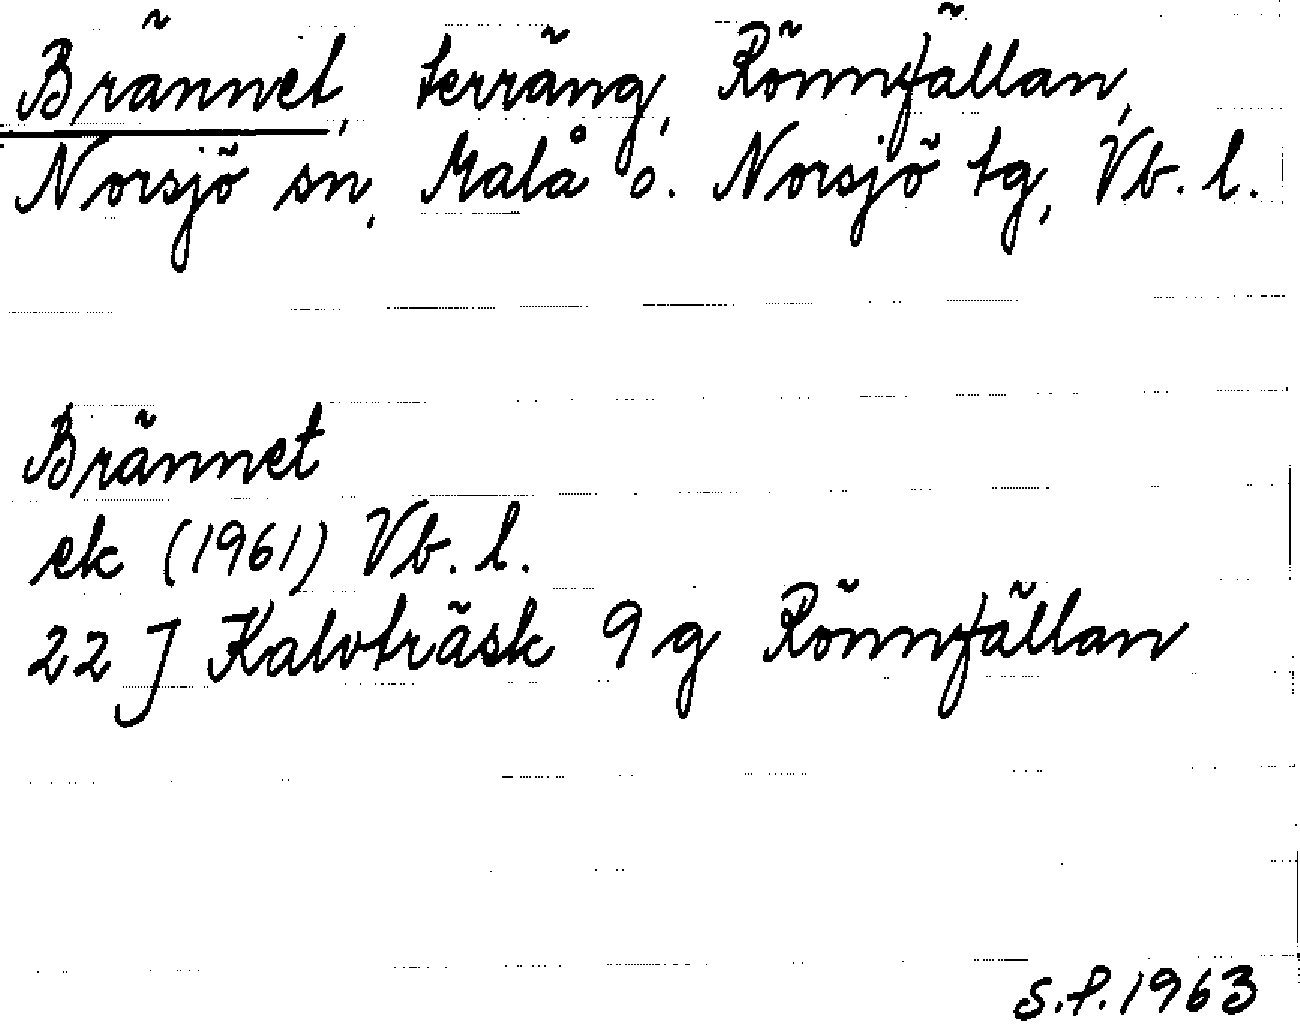 Brännet, terräng, Rönnfällan,
Norsjö sn, Malå o. Norsjö tg, Vb. l.
Brännet
ek (1961) Vb. l.
22 J Kalvträsk 9 g Rönnfällan
S.P. 1963